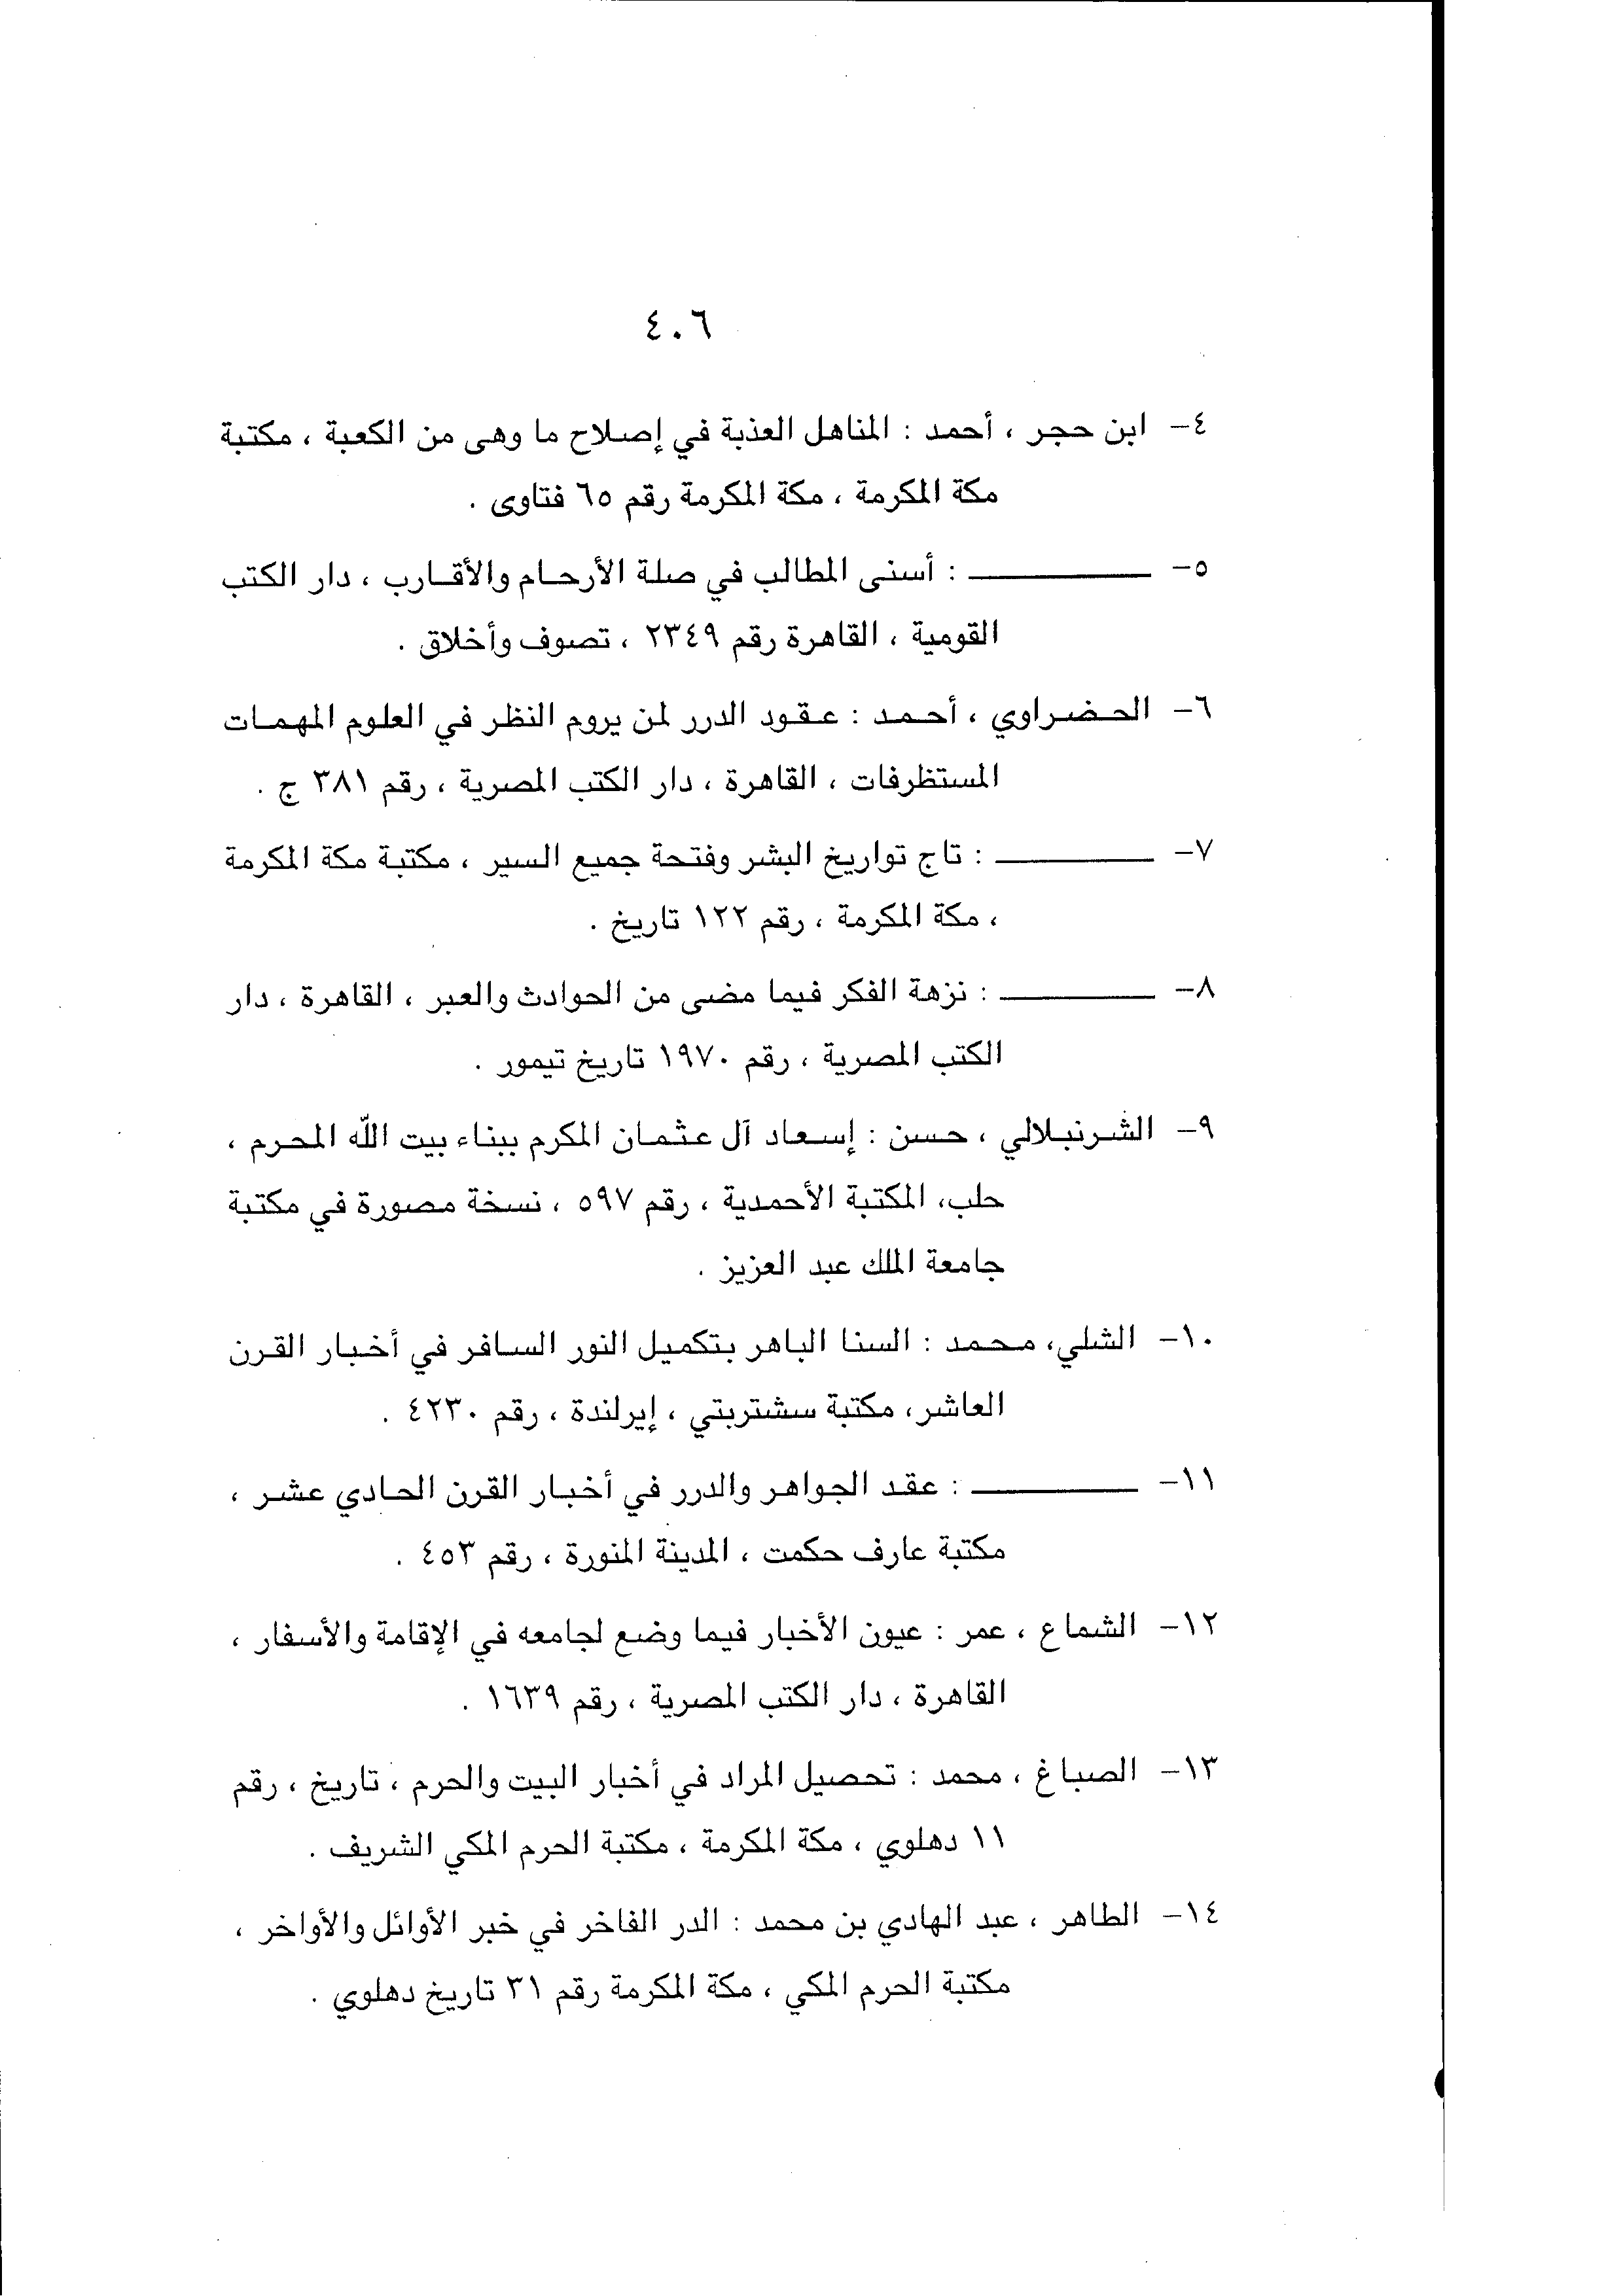 ٤٠٦
٤- ابن حجر ، أحمد : المناهل العذبة في إصلاح ما وهى من الكعبة ، مكتبة
مكة المكرمة ، مكة المكرمة رقم ٦٥ فتاوى .
٥- ــــــــــــــ : أسنى المطالب في صلة الأرحام والأقارب ، دار الكتب
القومية ، القاهرة رقم ٢٣٤٩ ، تصوف وأخلاق .
٦- الحضراوي ، أحمد : عقود الدرر لمن يروم النظر في العلوم المهمات
المستظرفات ، القاهرة ، دار الكتب المصرية ، رقم ٣٨١ ج .
٧- ــــــــــــــ : تاج تواريخ البشر وفتحة جميع السير ، مكتبة مكة المكرمة
، مكة المكرمة ، رقم ١٢٢ تاريخ .
٨- ــــــــــــــ : نزهة الفكر فيما مضى من الحوادث والعبر ، القاهرة ، دار
الكتب المصرية ، رقم ١٩٧٠ تاريخ تيمور .
٩- الشرنبلالي ، حسن : إسعاد آل عثمان المكرم ببناء بيت الله المحرم ،
حلب، المكتبة الأحمدية ، رقم ٥٩٧ ، نسخة مصورة في مكتبة
جامعة الملك عبد العزيز .
١٠- الشلي، محمد : السنا الباهر بتكميل النور السافر في أخبار القرن
العاشر، مكتبة سشتربتي ، إيرلندة ، رقم ٤٢٣٠ .
١١- ــــــــــــــ : عقد الجواهر والدرر في أخبار القرن الحادي عشر ،
مكتبة عارف حكمت ، المدينة المنورة ، رقم ٤٥٣ .
١٢- الشماع ، عمر : عيون الأخبار فيما وضع لجامعه في الإقامة والأسفار ،
القاهرة ، دار الكتب المصرية ، رقم ١٦٣٩ .
١٣- الصباغ ، محمد : تحصيل المراد في أخبار البيت والحرم ، تاريخ ، رقم
١١ دهلوي ، مكة المكرمة ، مكتبة الحرم المكي الشريف .
١٤- الطاهر ، عبد الهادي بن محمد : الدر الفاخر في خبر الأوائل والأواخر ،
مكتبة الحرم المكي ، مكة المكرمة رقم ٣١ تاريخ دهلوي .